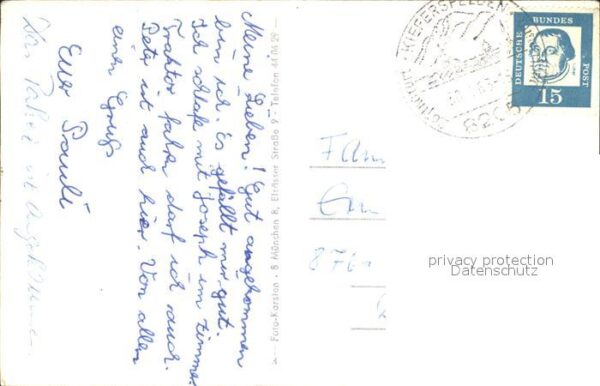 Meine Lieben! Gut angekommen
bin ich. Es gefällt mir gut.
Ich schlafe mit Joseph im Zimmer
Traktor fahren darf ich auch.
Peter ist auch hier. Von allen
einen Gruß
Euer Pauli
Das Paket ist angekommen
Foto-Karston · 8 München 8, Elsässer Straße 9 · Telefon 44 04 29
KIEFERSFELDEN
8205
DEUTSCHE BUNDESPOST
15
Fam
876
privacy protection
Datenschutz